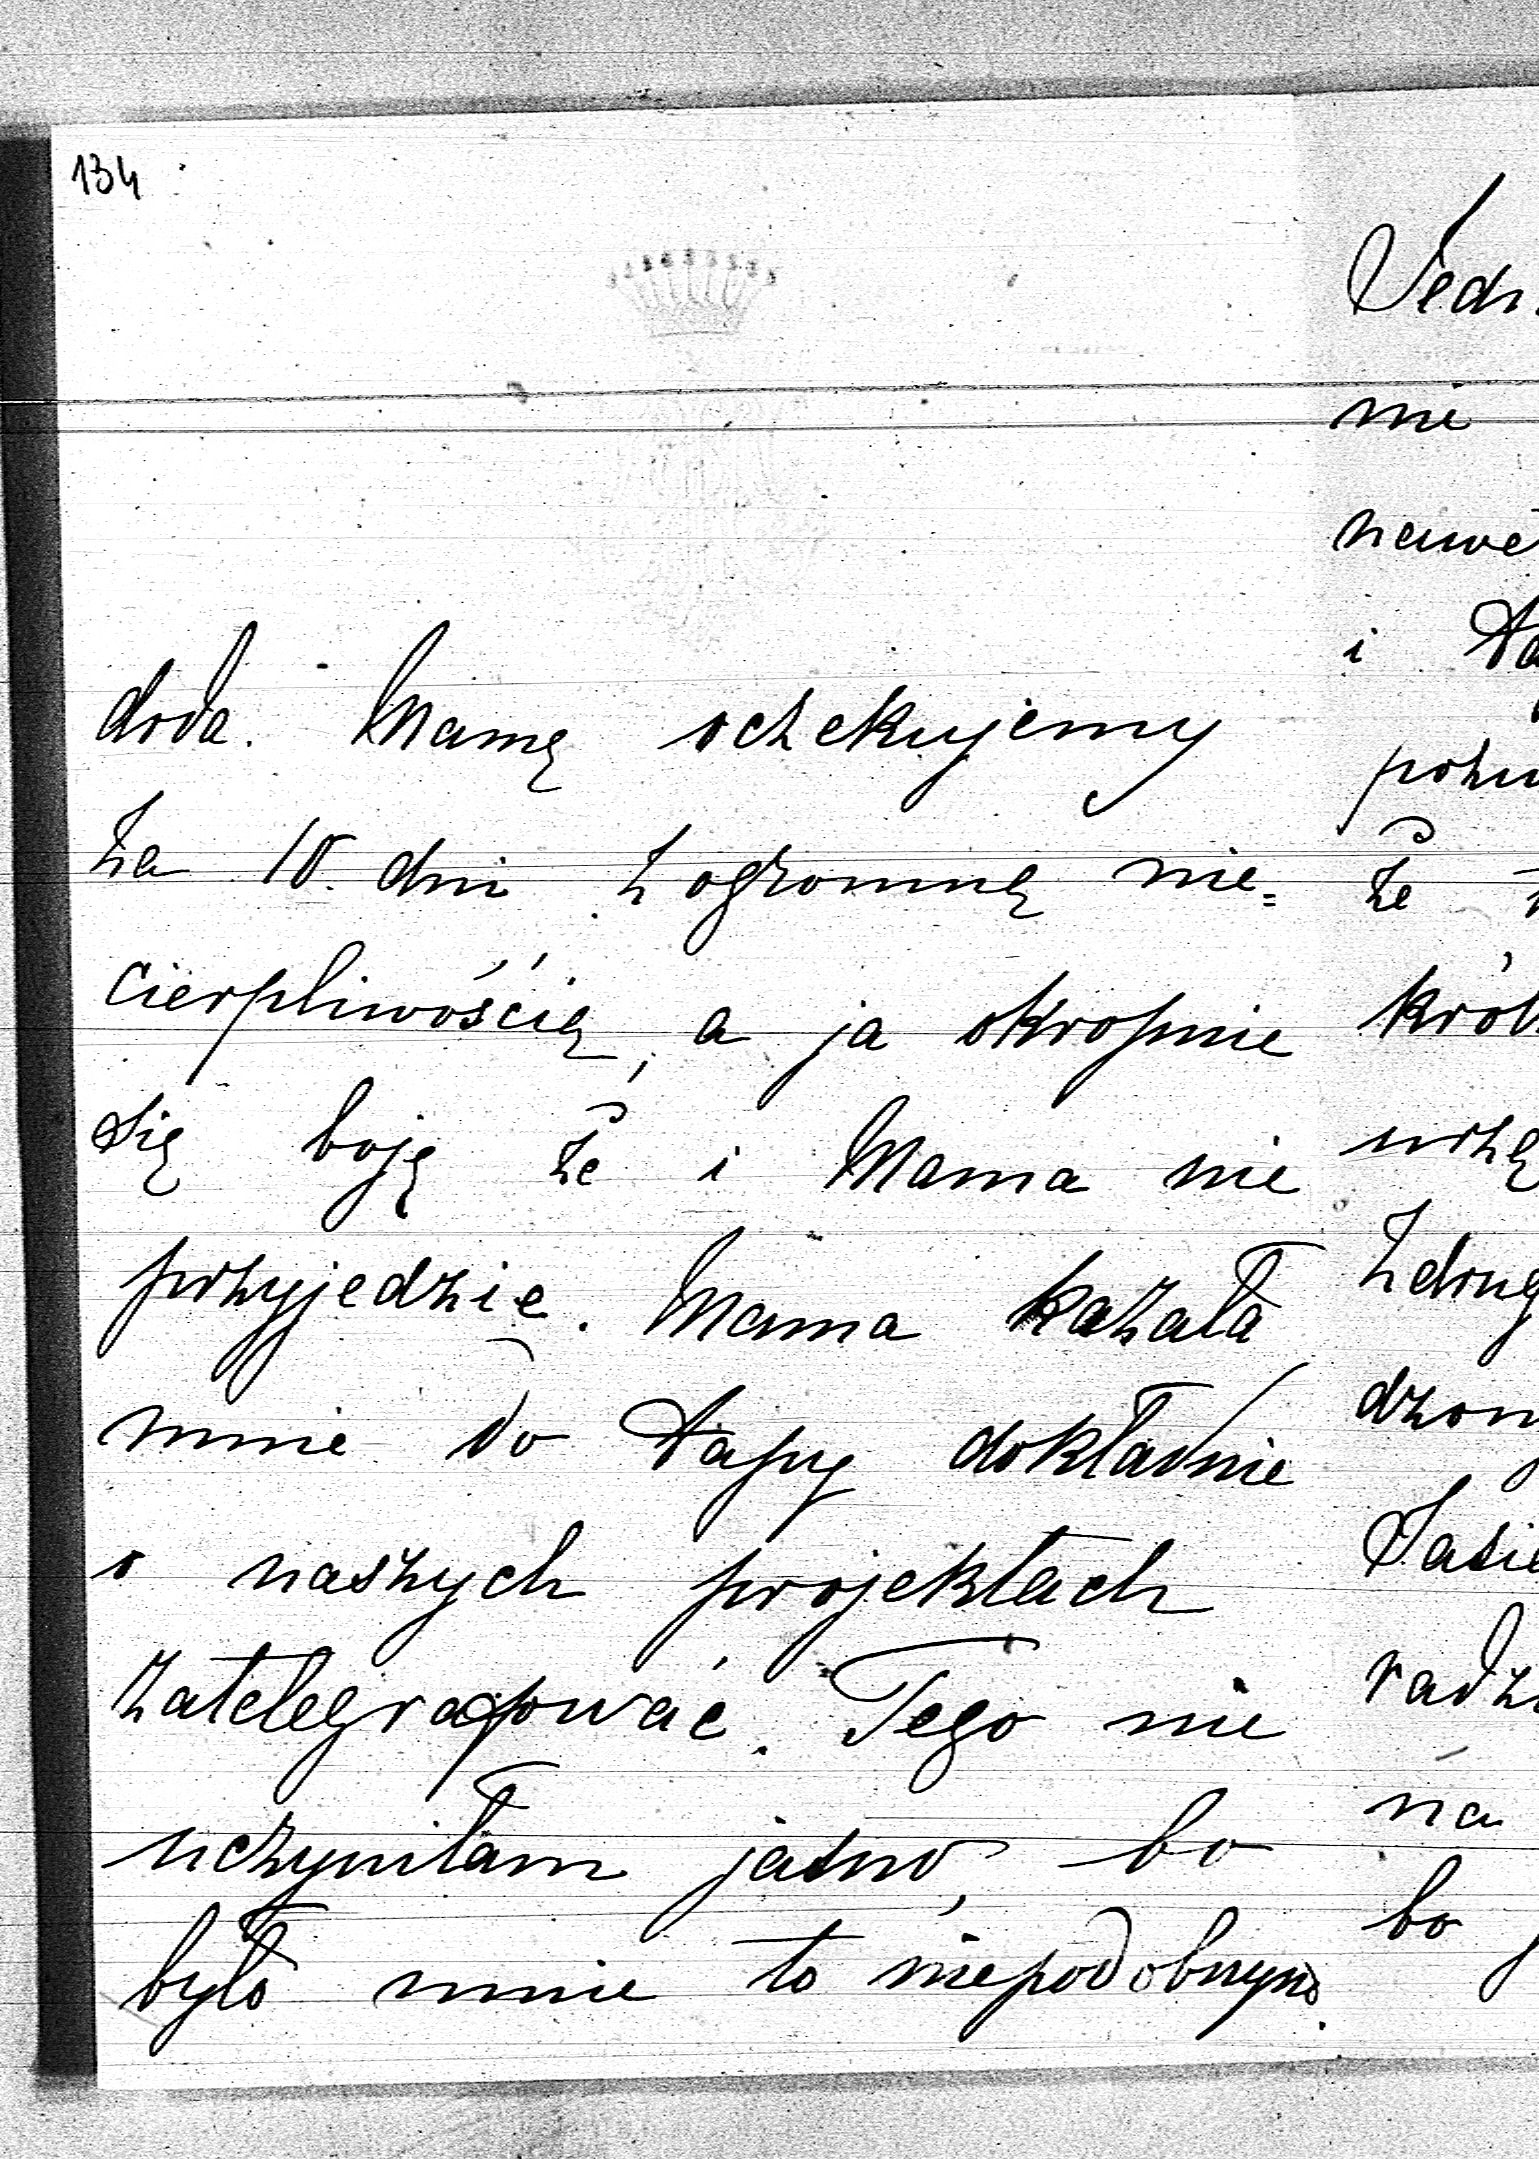 134
droda. Mamę oczekujemy
za 10. dni z ogromną nie=
cierpliwością, a ja okropnie
się boję że i Mama nie
przyjedzie. Mama kazała
mnie do Papy dokładnie
o naszych projektach
zatelegrafować. Tego nie
uczyniłam jasno, bo
było mnie to niepodobnym.
Jedn
mi
nawe
i Pa
pozw
że
król
urzę
Zdrug
dzon
Jasie
radz
na
bo